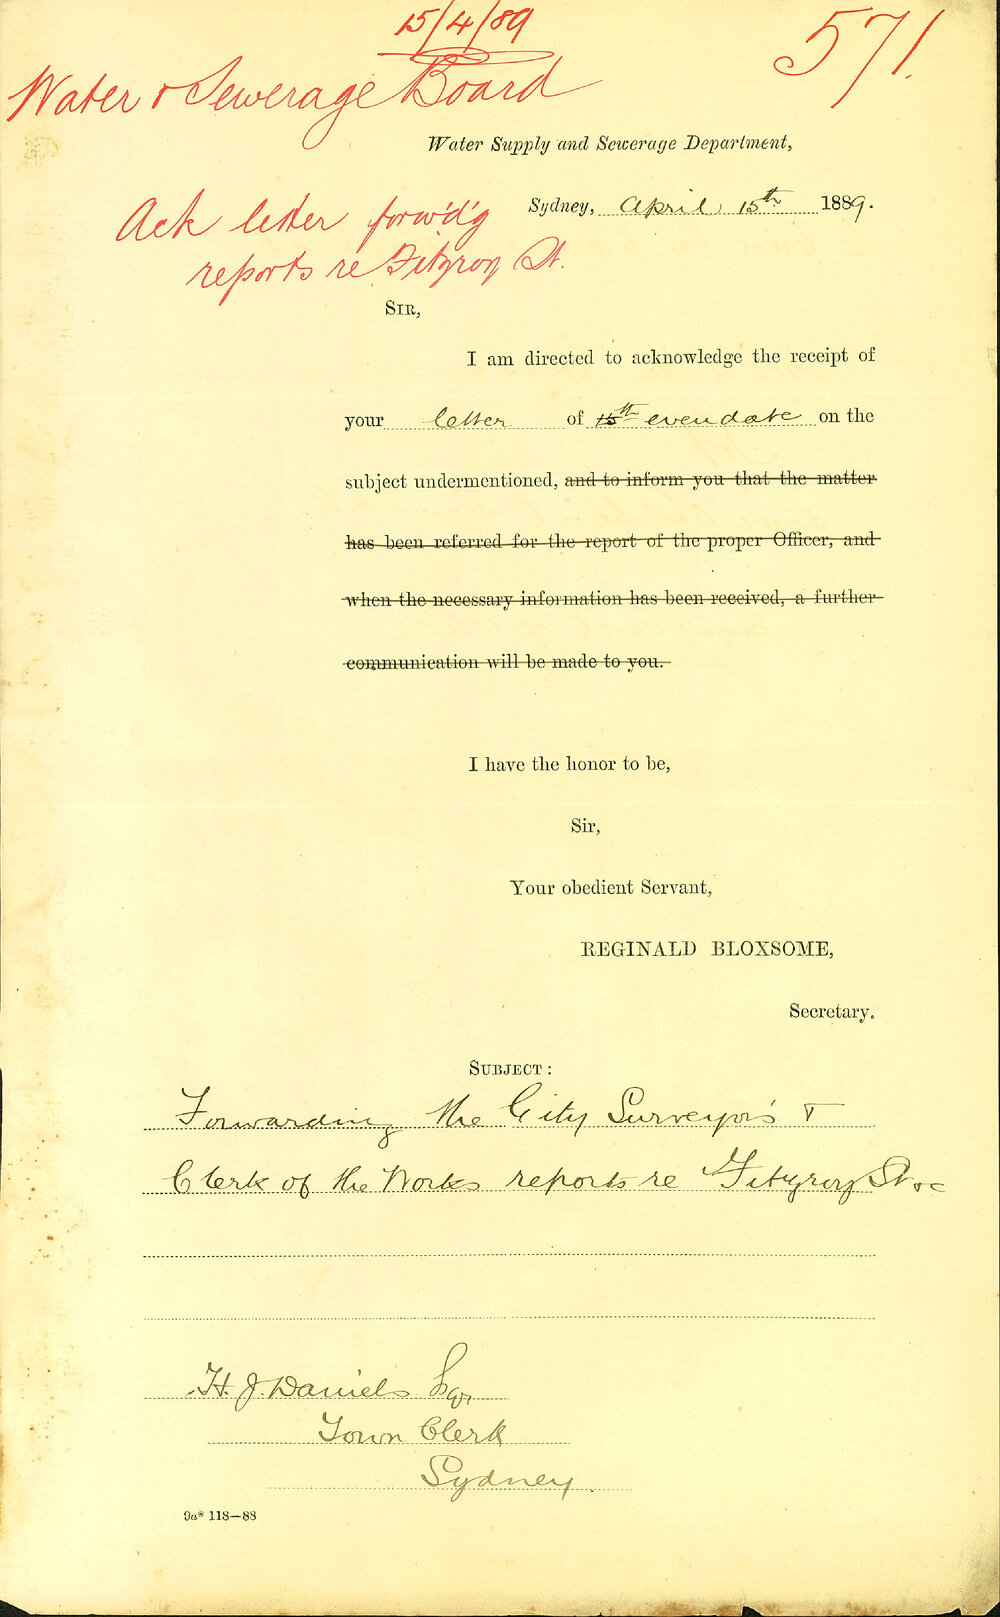 15/4/89
571.
Water & Sewerage Board
Water Supply and Sewerage Department,
Sydney, April 15th 1889.
Ack letter forw'd'g
reports re Fitzroy St.
SIR,
I am directed to acknowledge the receipt of
your letter of 15th even date on the
subject undermentioned, and to inform you that the matter
has been referred for the report of the proper Officer, and
when the necessary information has been received, a further
communication will be made to you.
I have the honor to be,
Sir,
Your obedient Servant,
REGINALD BLOXSOME,
Secretary.
SUBJECT:
Forwarding the City Surveyor's &
Clerk of the Works reports re Fitzroy St &c
H. J. Daniels Esqr
Town Clerk
Sydney.
9a* 118—88